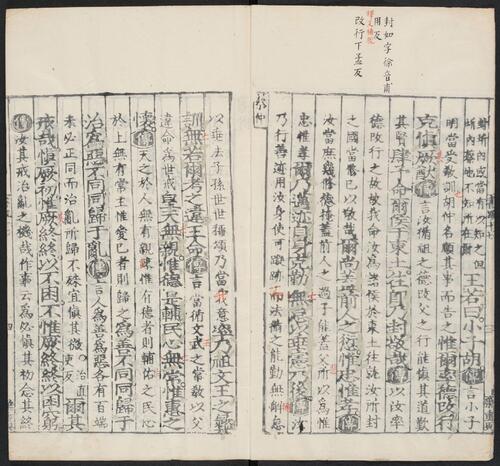 封如字徐音甫
用反
釋文補脫
改行下孟反
王若曰小子胡傳言小子
明當受教訓胡仲名順其事而告之惟爾率德改行
克慎厥猷傳言汝循祖之德改父之行能慎其道歎
其賢肆予命爾侯于東土往即乃封敬哉傳以汝率
德改行之故故我命汝爲諸侯於東土往就汝所封
之國當脩己以敬哉爾尚蓋前人之愆惟忠惟孝傳
汝當庶幾脩德掩蓋前人之過子能蓋父所以爲惟
忠惟孝爾乃邁迹自身克勤無怠以垂憲乃後傳汝
乃行善迹用汝身使可蹤跡而法循之能勤無懈怠
蔡仲
以垂法子孫世世稱頌乃當我意率乃祖文王之彝
訓無若爾考之違王命傳言當循文武之常教以父
違命爲世戒皇天無親惟德是輔民心無常惟惠之
懷傳天之於人無有親疎惟有德者則輔佐之民心
於上無有常主惟愛己者則歸之爲善不同同歸于
治爲惡不同同歸于亂傳言人爲善爲惡各有百端
未必正同而治亂所歸不殊宜慎其微治直吏反爾其
戒哉慎厥初惟厥終終以不困不惟厥終終以困窮
傳汝其戒治亂之機哉作事云爲必慎其初念其終